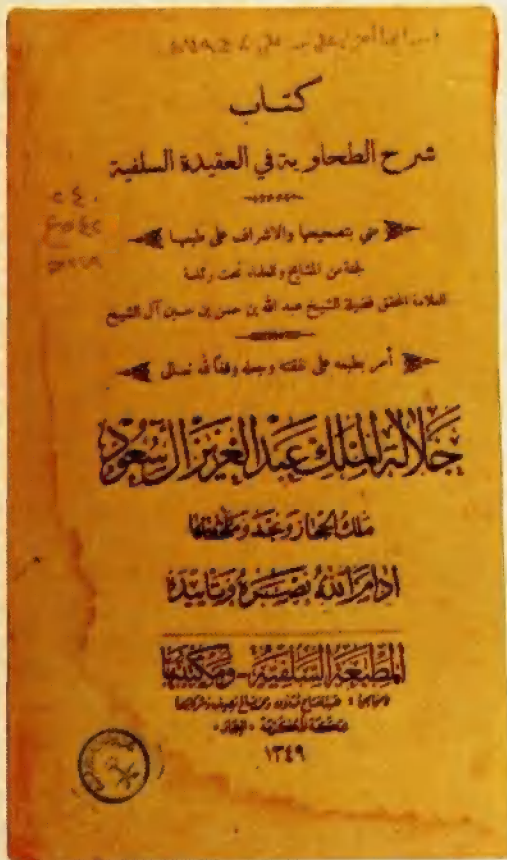 كتاب
شرح الطحاوية في العقيدة السلفية
عني بتصحيحها والاشراف على طبعها
لجنة من المشايخ والعلماء تحت رئاسة
العلامة المحقق فضيلة الشيخ عبد الله بن حسن بن حسين آل الشيخ
أمر بطبعه على نفقته وجعله وقفاً لله تعالى
جلالة الملك عبد العزيز آل سعود
ملك الحجاز ونجد وملحقاتها
أدام الله نصره وتأييده
المطبعة السلفية - ومكتبتها
١٣٤٩